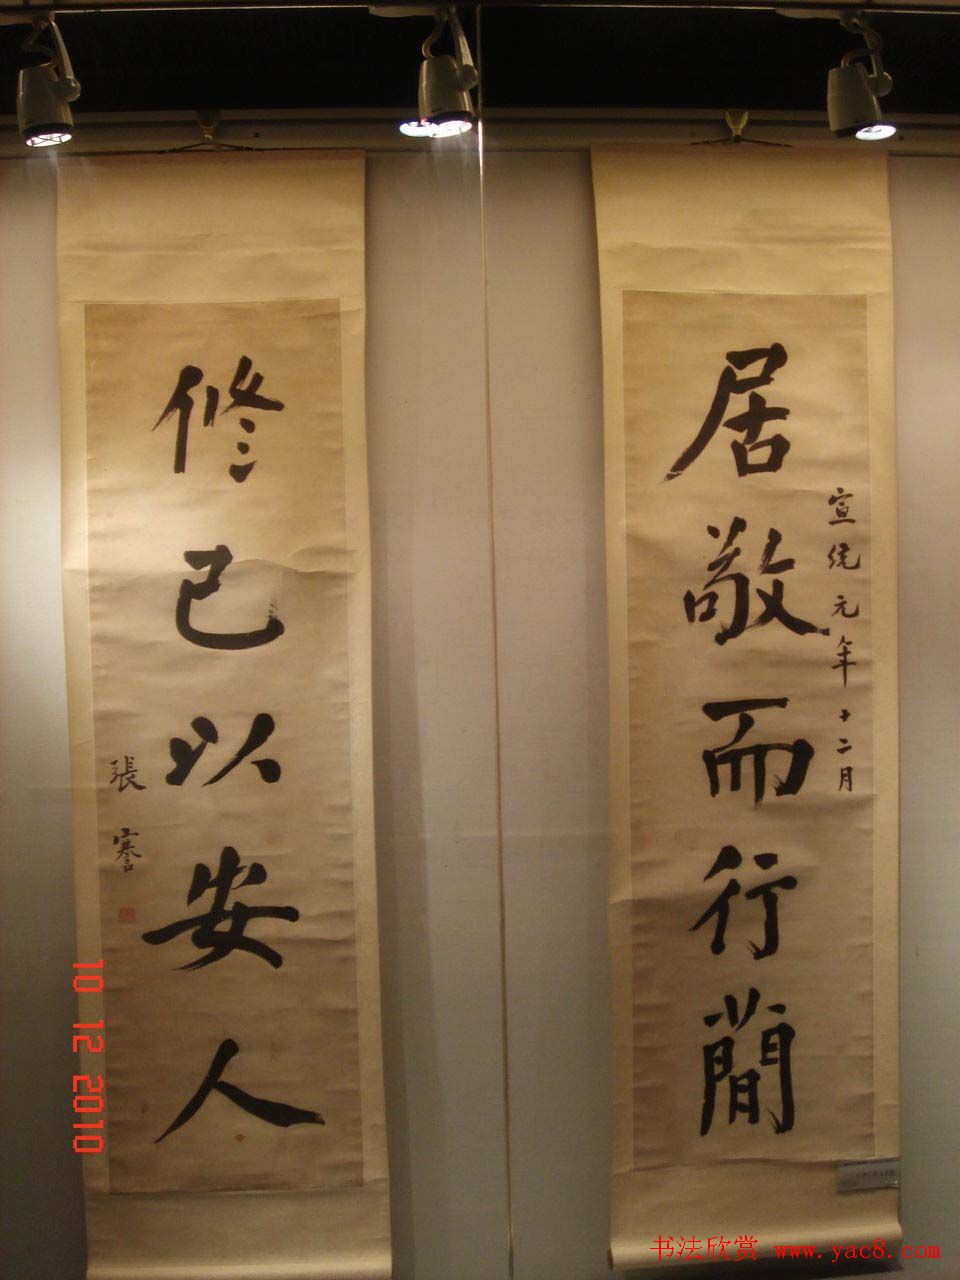 居敬而行簡
宣統元年十二月
修己以安人
張謇
10 12 2010
书法欣赏 www.yac8.com